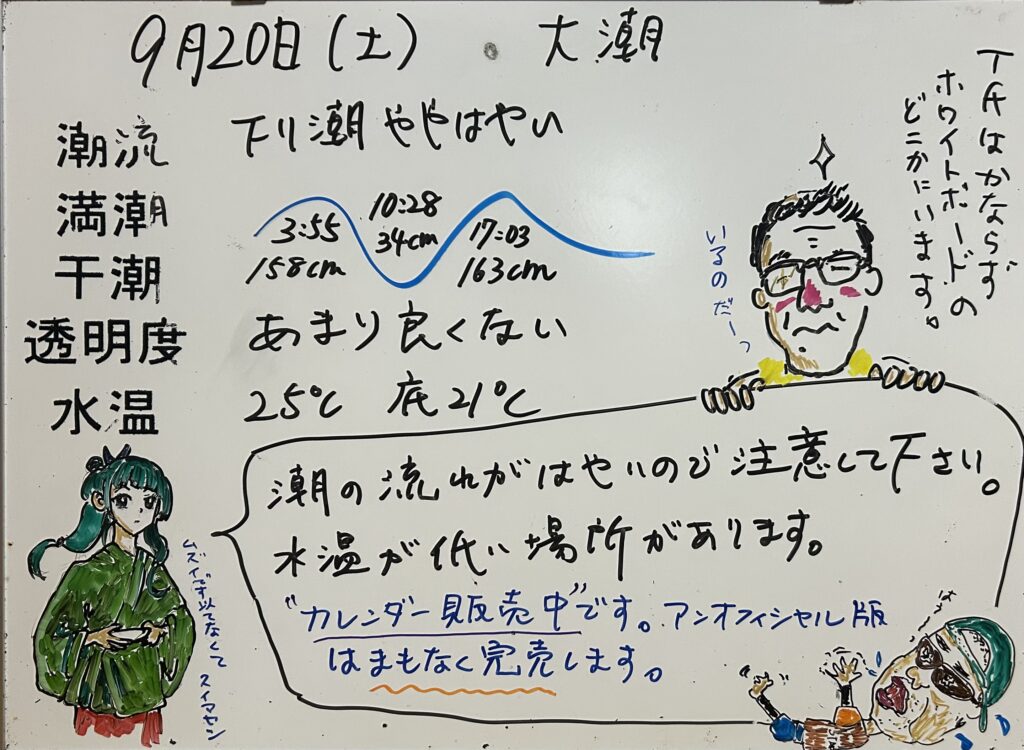 9月20日(土) 大潮
潮流 下り潮 ややはやい
満潮
干潮
3:55
158cm
10:28
34cm
17:03
163cm
透明度 あまり良くない
水温 25℃ 底21℃
T氏はかならず
ホワイトボードの
どこかにいます。
いるのだーっ
潮の流れがはやいので注意して下さい。
水温が低い場所があります。
"カレンダー販売中"です。アンオフィシャル版
はまもなく完売します。
ムズイです似てなくて スイマセン